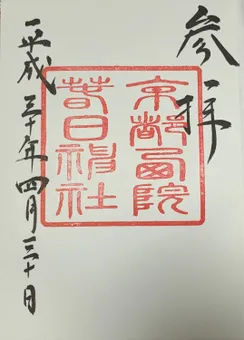 参拝
京都西院
春日神社
平成三十年四月三十日